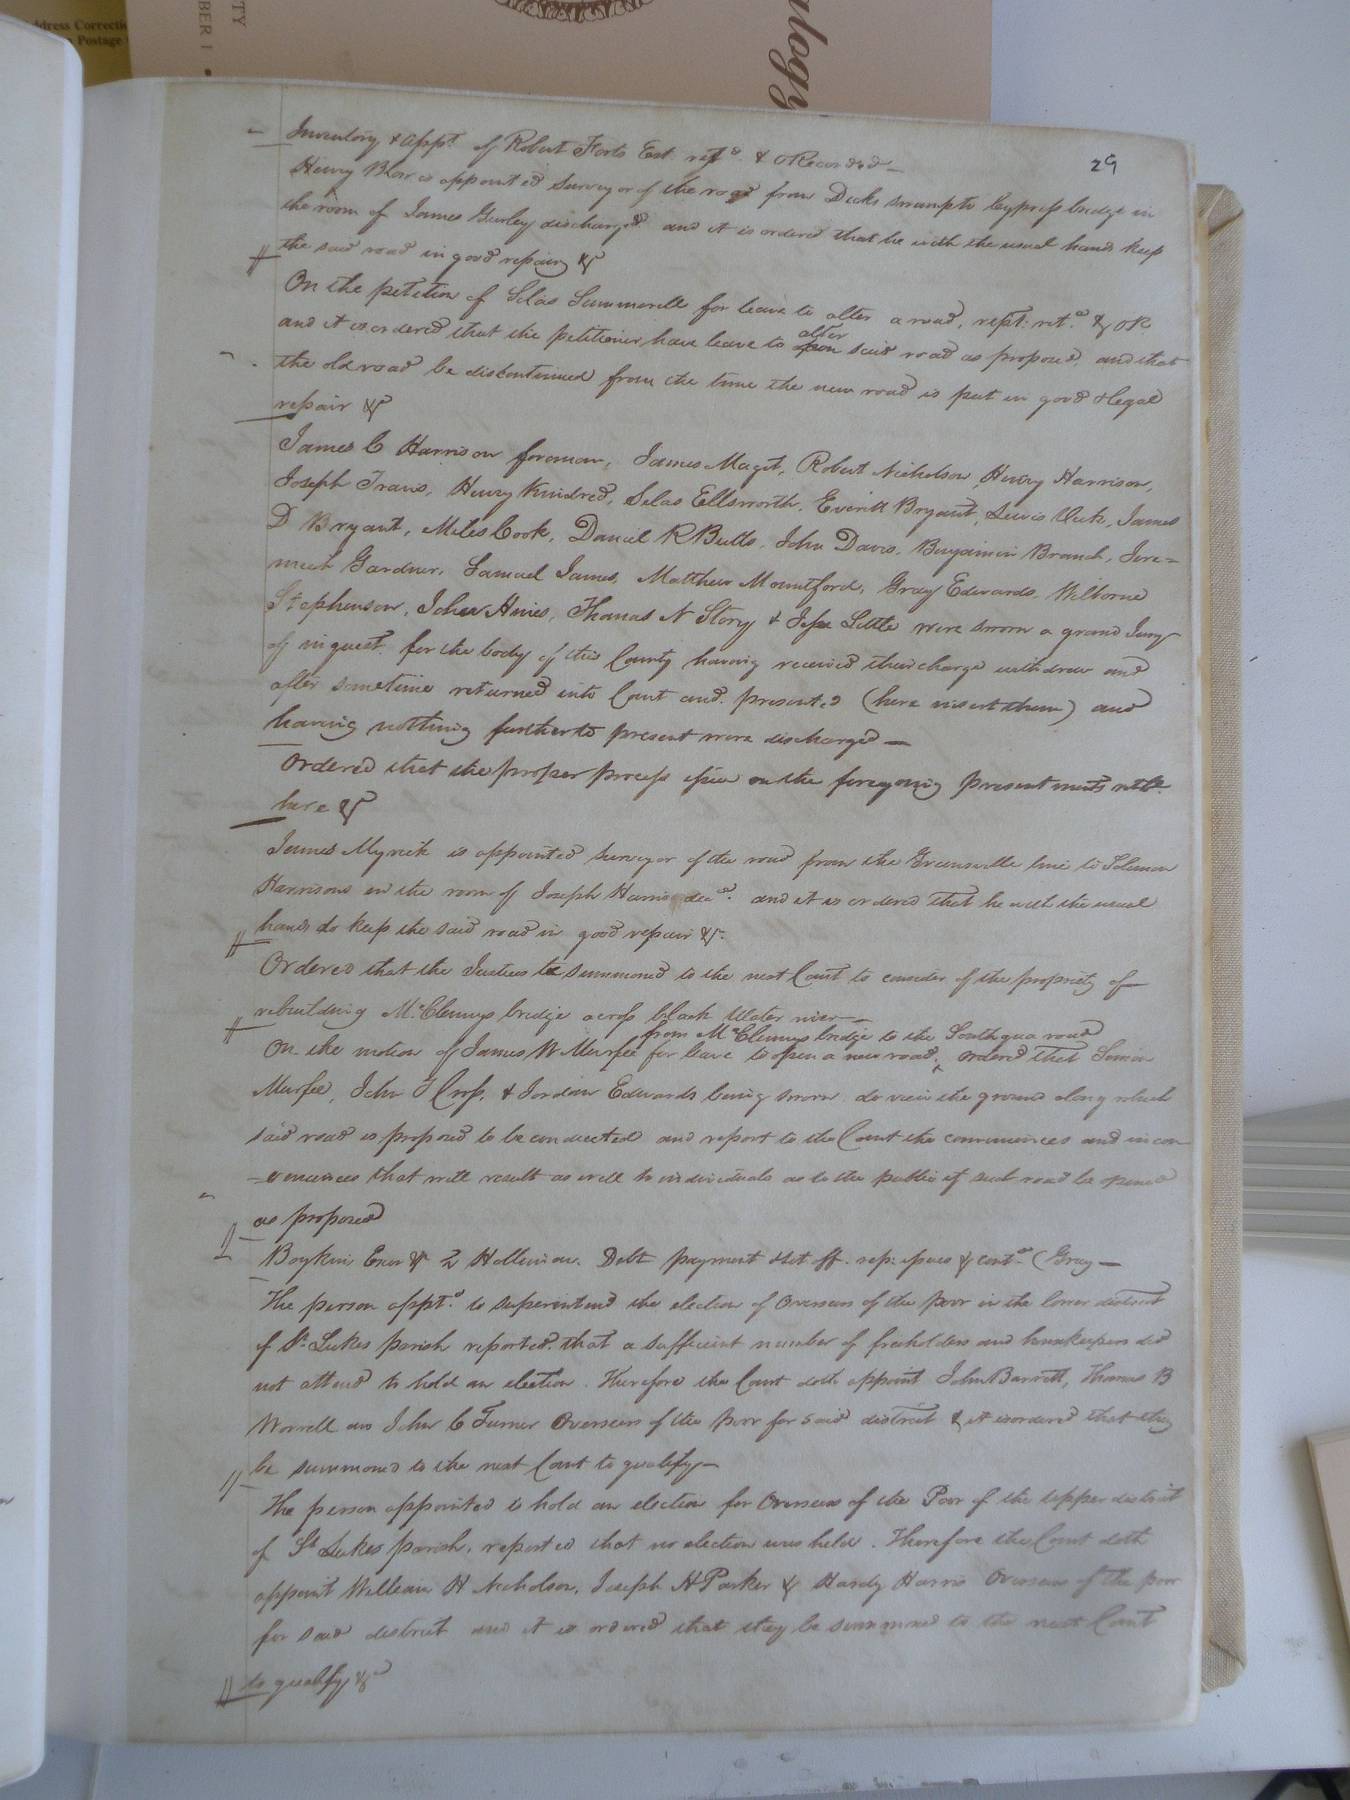 Address Correctio
Postage
TY
BER 1 •
alogy
29
Inventory & appt. of Robert Forts Est. retd. & ORecorded —
Henry Blow is appointed Surveyor of the road from Decks swamp to Cypress bridge in
the room of James Gurley discharged and it is ordered that he with the usual hands keep
the said road in good repair &c
On the petition of Silas Summerell for leave to alter a road, rept: ret.d & OR
and it is ordered that the petitioner have leave to alter said road as proposed, and that
the old road be discontinued from the time the new road is put in good & legal
repair &c
James C Harrison foreman, James Maget, Robert Nicholson, Henry Harrison,
Joseph Travis, Henry Kindred, Silas Ellsworth, Everitt Bryant, Lewis Vick, James
D Bryant, Miles Cook, Daniel R Butts, John Davis, Benjamin Branch, Jere=
miah Gardner, Samuel James, Matthew Mountford, Gray Edwards, Wilborne
Stephenson, John Hines, Thomas N Story & Jesse Little were sworn a grand Jury
of inquest for the body of this County having received their charge withdrew and
after sometime returned into Court and presented (here insert them) and
having nothing further to present were discharged —
Ordered that the proper process issue on the foregoing presentments retble.
here &c
James Myrick is appointed surveyor of the road from the Greensville line to Solomon
Harrisons in the room of Joseph Harris decd. and it is ordered that he with the usual
hands do keep the said road in good repair &c.
Ordered that the Justices be summoned to the next Court to consider of the propriety of
rebuilding McClennys bridge across black Water river —
from McClennys bridge to the South qua road
On the motion of James W Murfee for leave to open a new road, ordered that Simon
Murfee, John T Cross, & Jordan Edwards being sworn do view the ground along which
said road is proposed to be conducted and report to the Court the conveniences and incon
-veniences that will result as well to individuals as to the public if such road be opened
as proposed
Boykin Exor &c v Holleman. Debt payment & set off. rep: issue & contd. (Gray —
The person apptd. to superintend the election of Overseers of the Poor in the lower district
of St. Lukes parish reported that a sufficient number of freeholders and housekeepers did
not attend to hold an election. Therefore the Court doth appoint John Barrett, Thomas B
Worrell and John C Turner Overseers of the poor for said district & it is ordered that they
be summoned to the next Court to qualify —
The person appointed to hold an election for Overseers of the Poor of the upper district
of St Lukes parish, reported that no election was held. Therefore the Court doth
appoint William H Nicholson, Joseph H Parker & Hardy Harris Overseers of the poor
for said district and it is ordered that they be summoned to the next Court
to qualify &c